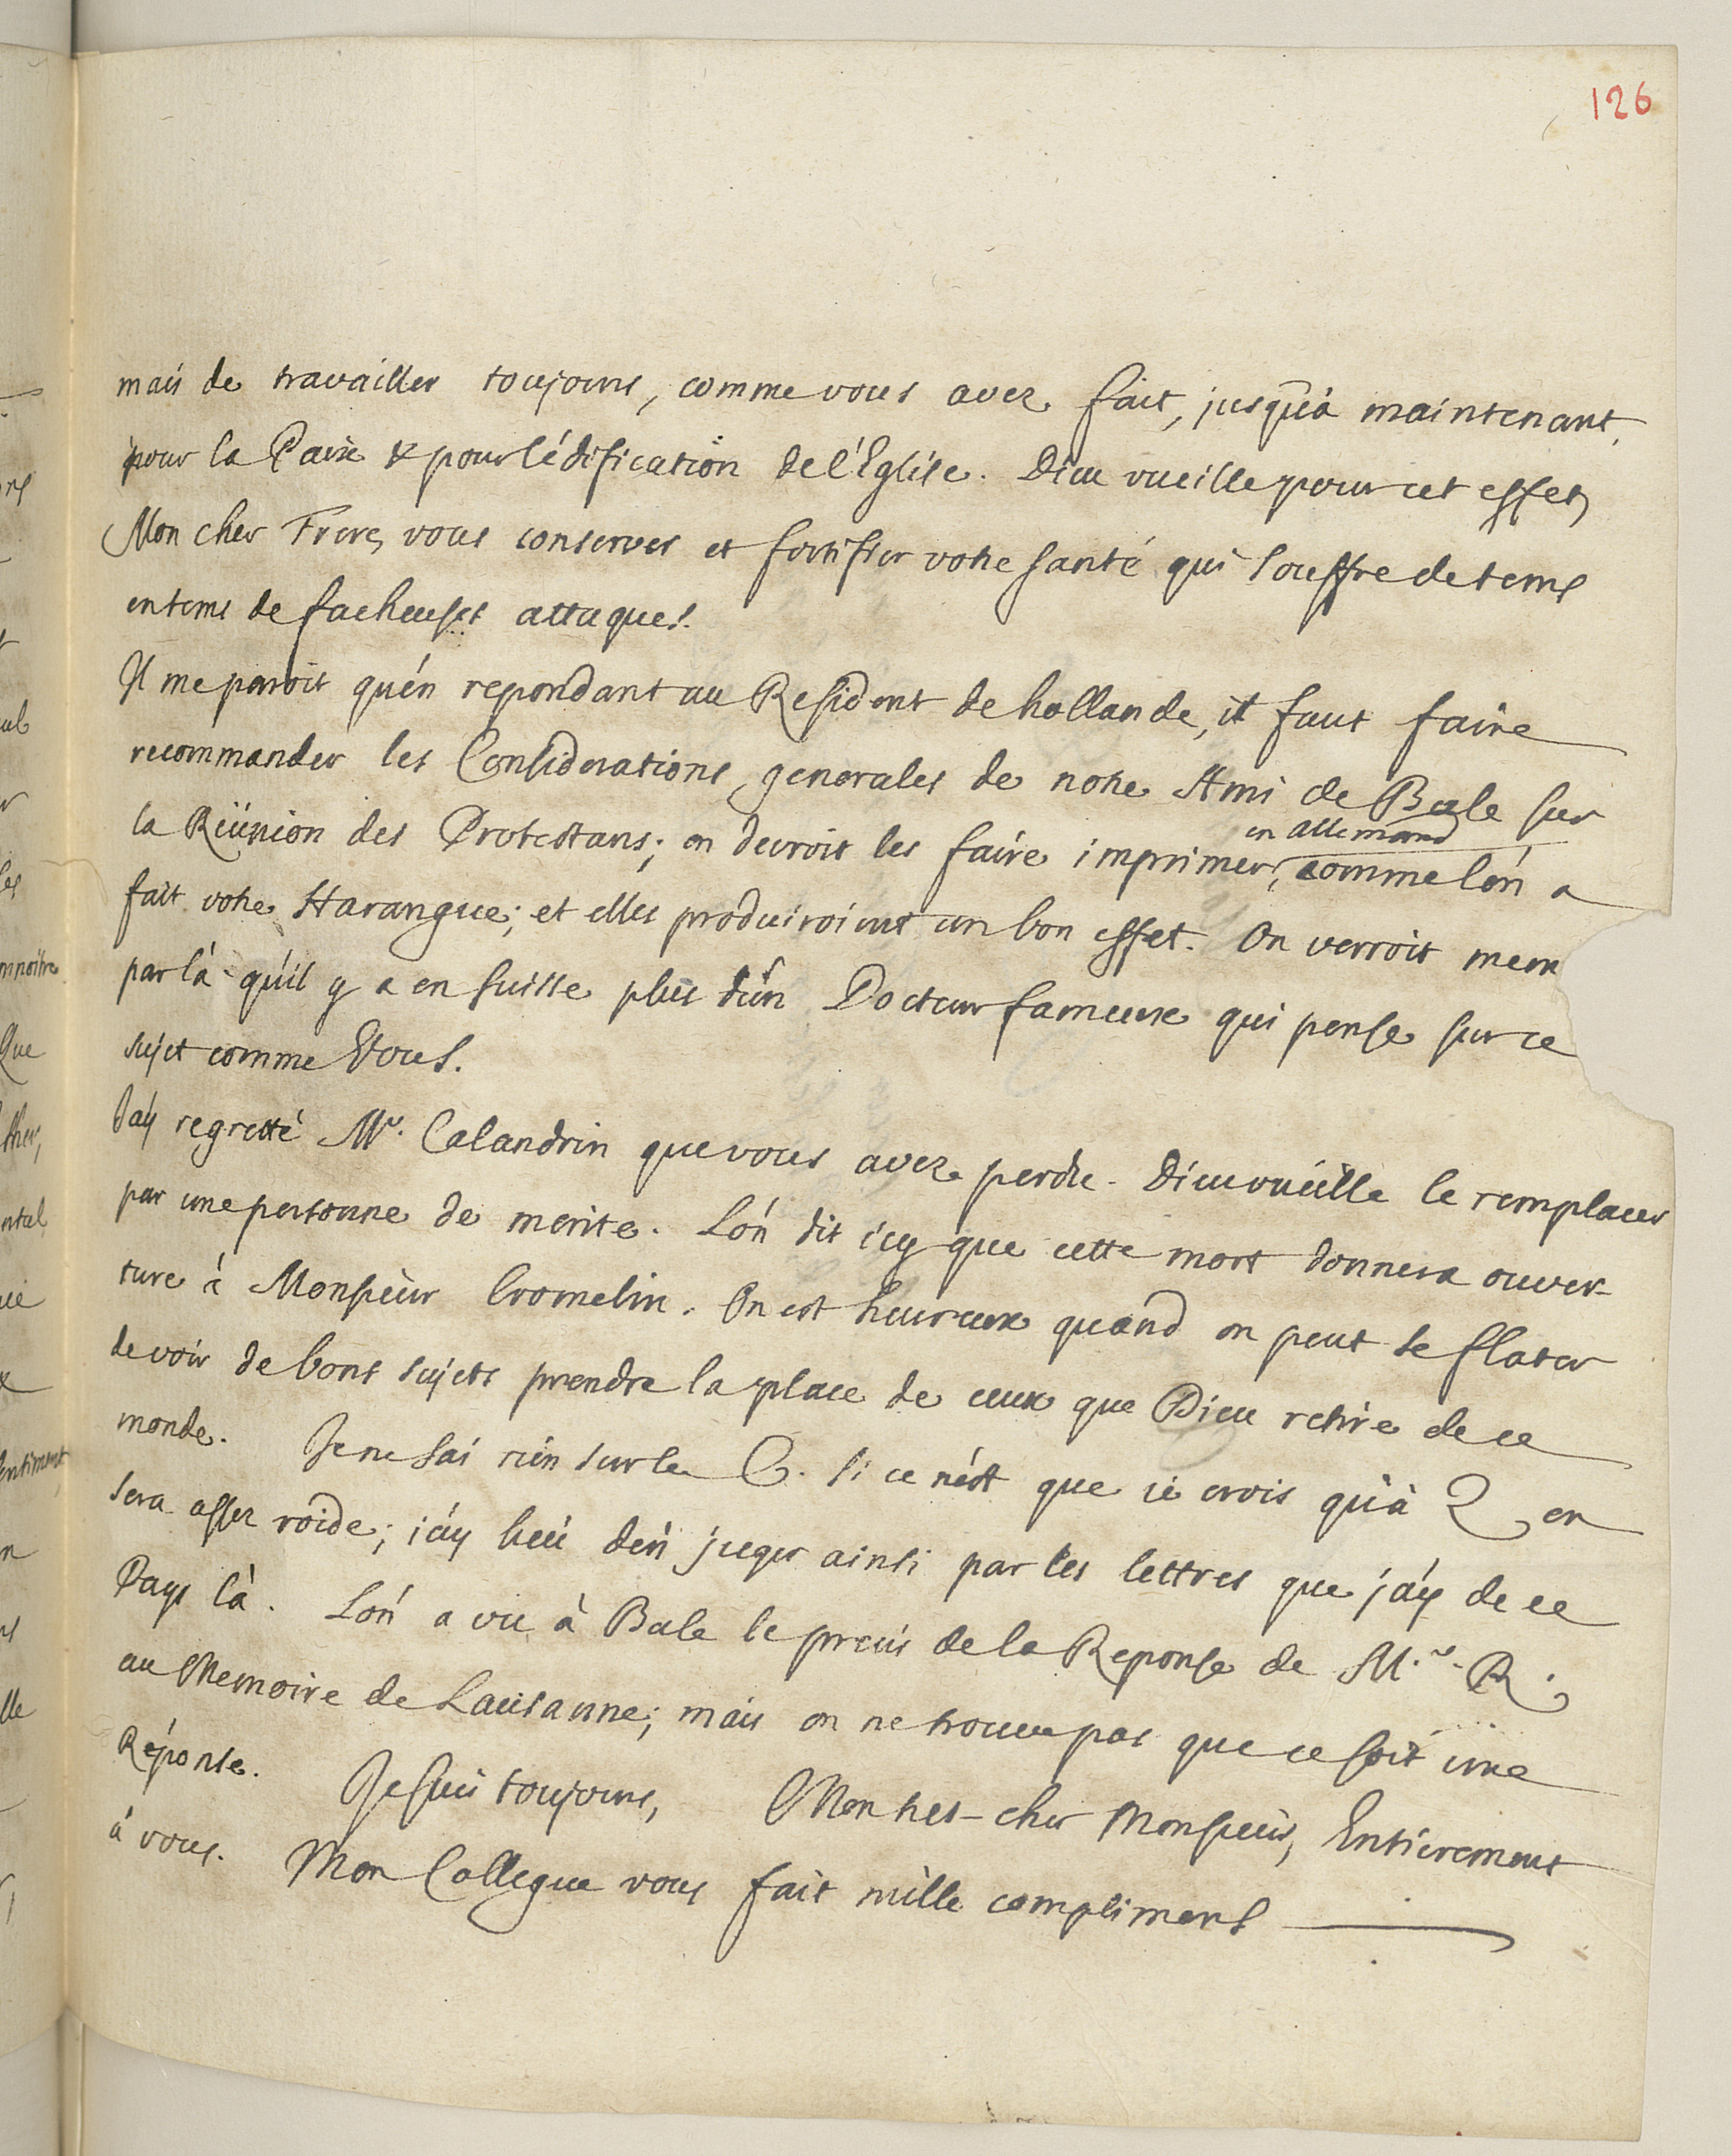 126
mais de travailler toujours, comme vous avez fait, jusqu'à maintenant,
pour la Paix & pour l'édification de l'Eglise. Dieu vueille pour cet effet,
Mon cher Frere, vous conserver et fortifier votre santé qui souffre de tems
en tems de facheuses attaques.
Il me paroit qu'en repondant au Resident de hollande, il faut faire
recommander les Considerations generales de notre Ami de Bale sur
la Réünion des Protestans; on devroit les faire imprimer, en allemand comme l'on a
fait votre Harangue; et elles produiroient un bon effet. On verroit mem
par là qu'il y a en suisse plus d'un Docteur fameux qui pense sur ce
sujet comme Vous.
J'ay regretté Mr. Calandrin que vous avez perdu. Dieu vueille le remplacer
par une personne de merite. L'on dit icy que cette mort donnera ouver-
ture à Monsieur Cromelin. On est heureux quand on peut se flater
de voir de bons sujets prendre la place de ceux que Dieu retire de ce
monde. Je ne sai rien sur le C. si ce n'est que je crois qu'à Z on
sera assez roide; j'ay lieu d'en juger ainsi par les lettres que j'ay de ce
Pays là. L'on a vu à Bale le precis de la Reponse de Mr. R.
au Memoire de Lausanne; mais on ne trouve pas que ce soit une
Réponse. Je suis toujours, Mon tres-cher Monsieur, Entierement
à vous. Mon Collegue vous fait mille complimens